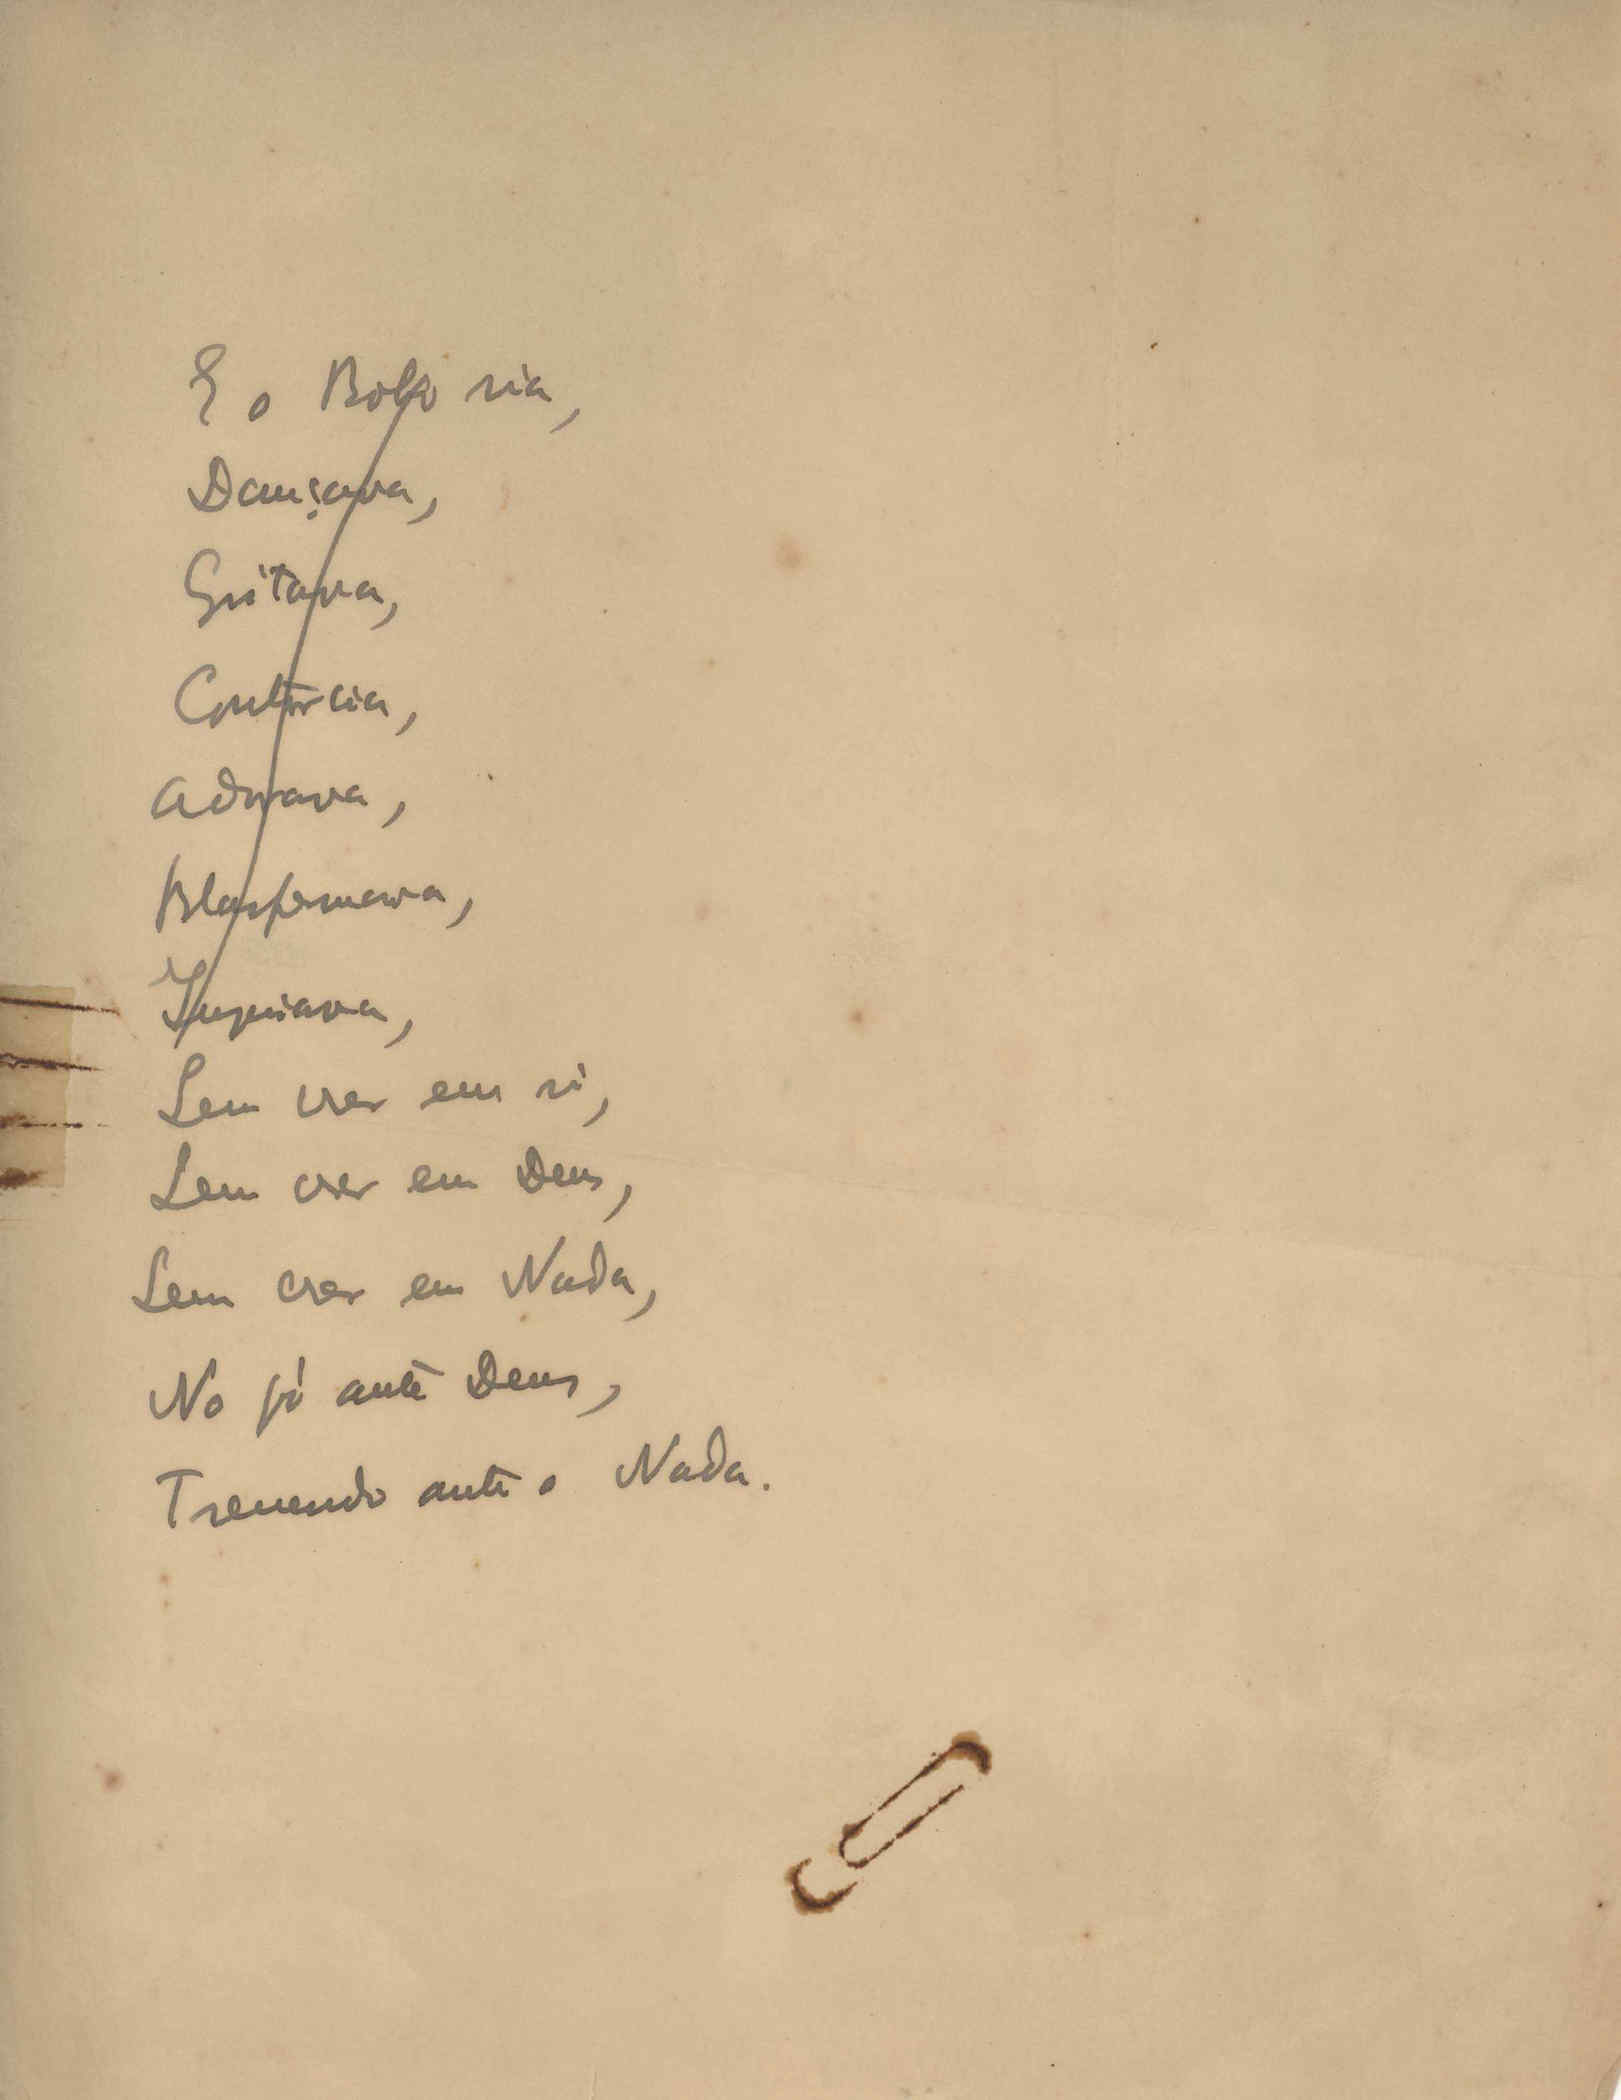 E o Bobo ria,
Dançava,
Gritava,
Contorcia,
Adorava,
Blasfemava,
Sem crer em si,
Sem crer em Deus,
Sem crer em Nada,
No pó ante Deus,
Tremendo ante o Nada.